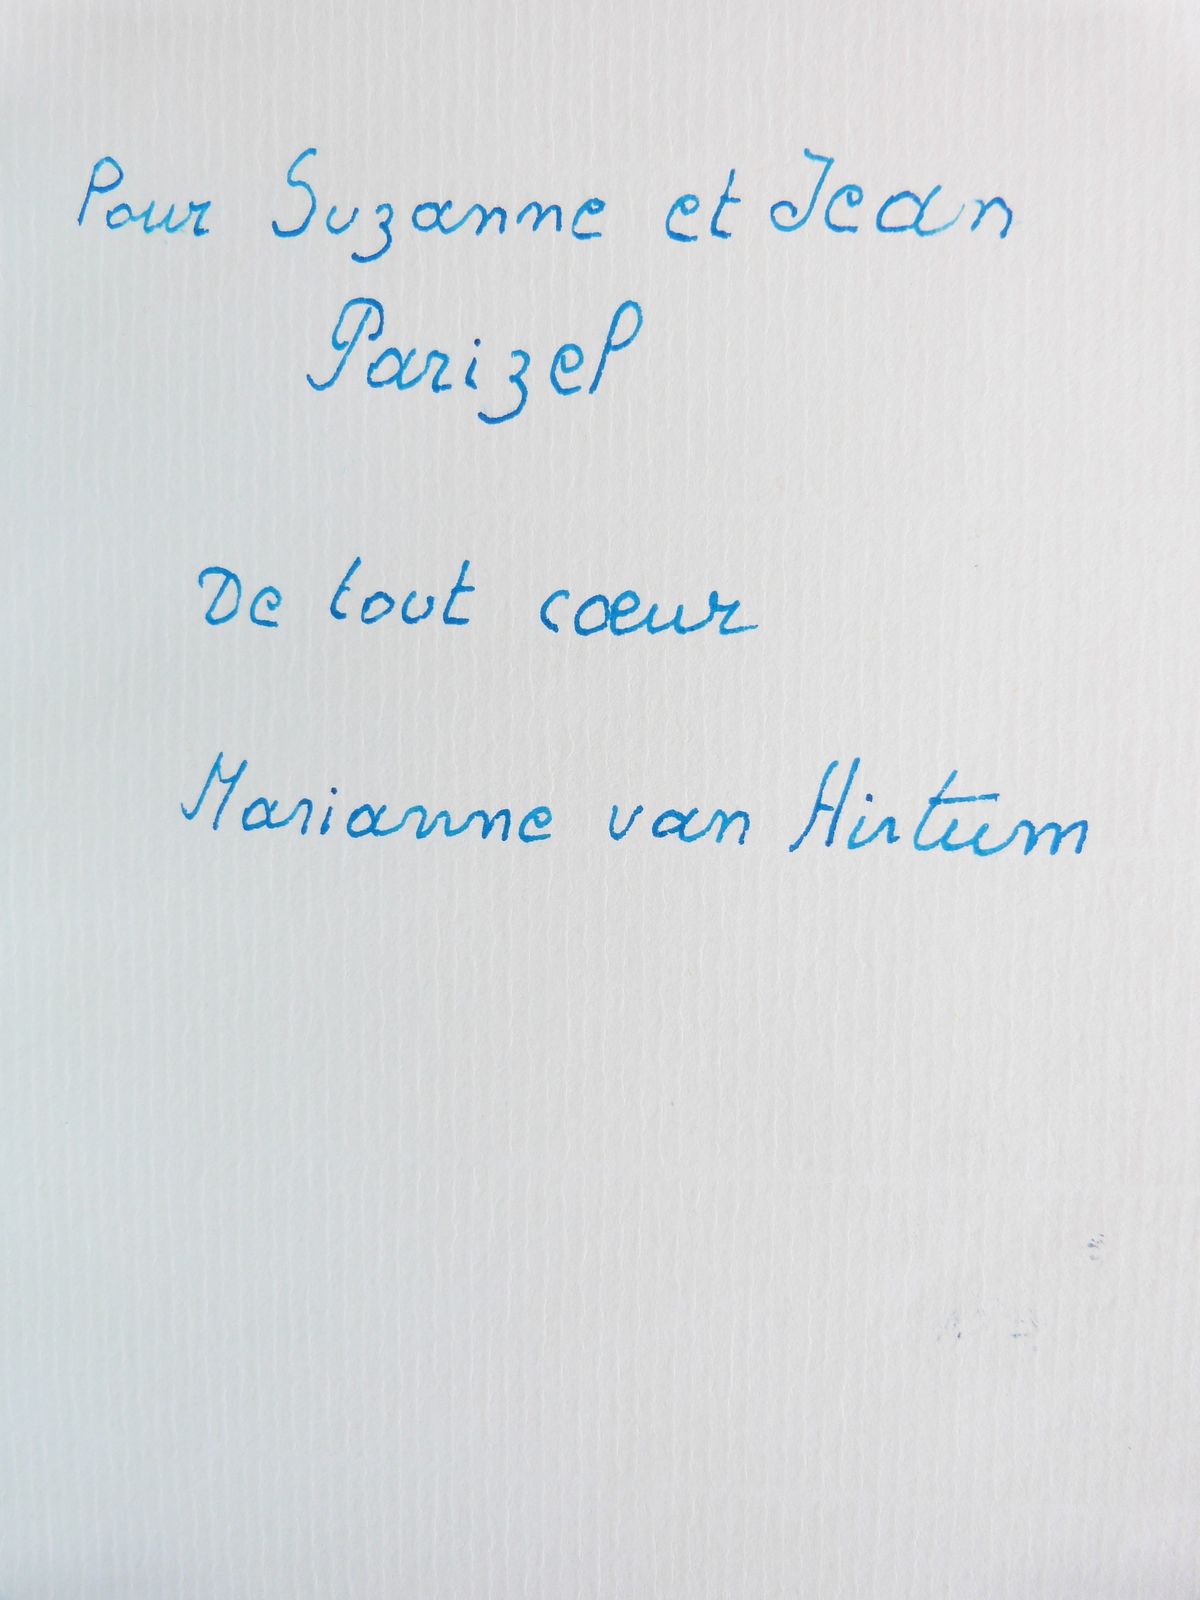 Pour Suzanne et Jean
Parizel
De tout cœur
Marianne van Hirtum